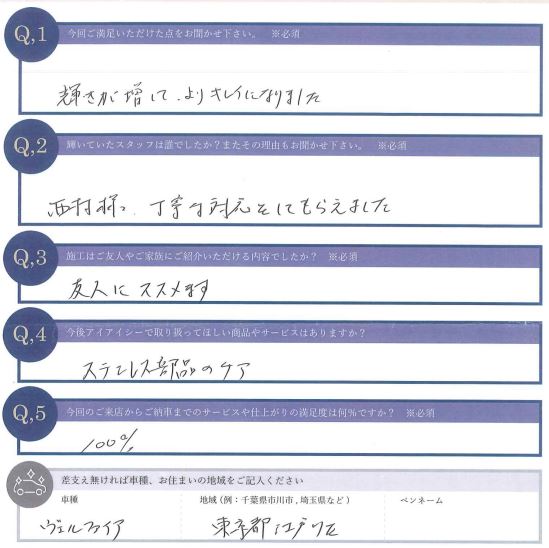 Q,1 今回ご満足いただけた点をお聞かせ下さい。 ※必須
輝きが増して、よりキレイになりました
Q,2 輝いていたスタッフは誰でしたか？またその理由もお聞かせ下さい。 ※必須
西村様。丁寧な対応をしてもらえました
Q,3 施工はご友人やご家族にご紹介いただける内容でしたか？ ※必須
友人にススメます
Q,4 今後アイアイシーで取り扱ってほしい商品やサービスはありますか？
ステンレス部品のケア
Q,5 今回のご来店からご納車までのサービスや仕上がりの満足度は何％ですか？ ※必須
100%
差支え無ければ車種、お住まいの地域をご記入ください
車種 地域（例：千葉県市川市，埼玉県など） ペンネーム
ヴェルファイア 東京都江戸川区